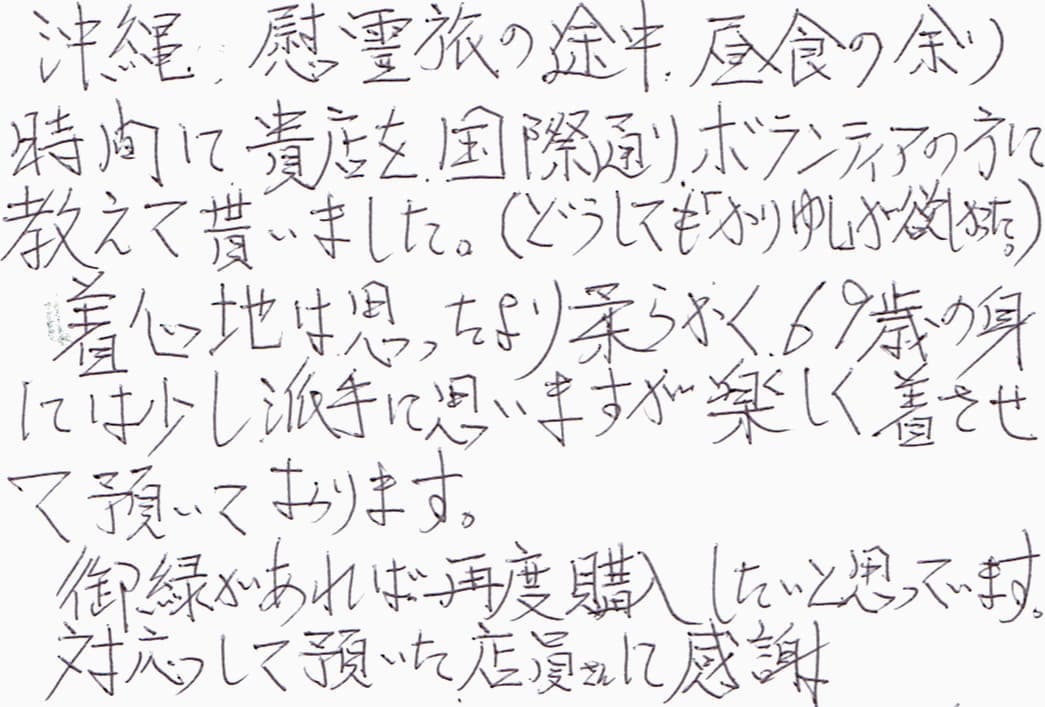 沖縄、慰霊旅の途中、昼食の余り
時間に貴店を、国際通りボランティアの方に
教えて貰いました。(どうしても「かりゆし」が欲しかった。)
着心地は思ったより柔らかく、69歳の身
には少し派手に思いますが楽しく着させ
て預いております。
御縁があれば再度購入したいと思っています。
対応して預いた店員さんに感謝